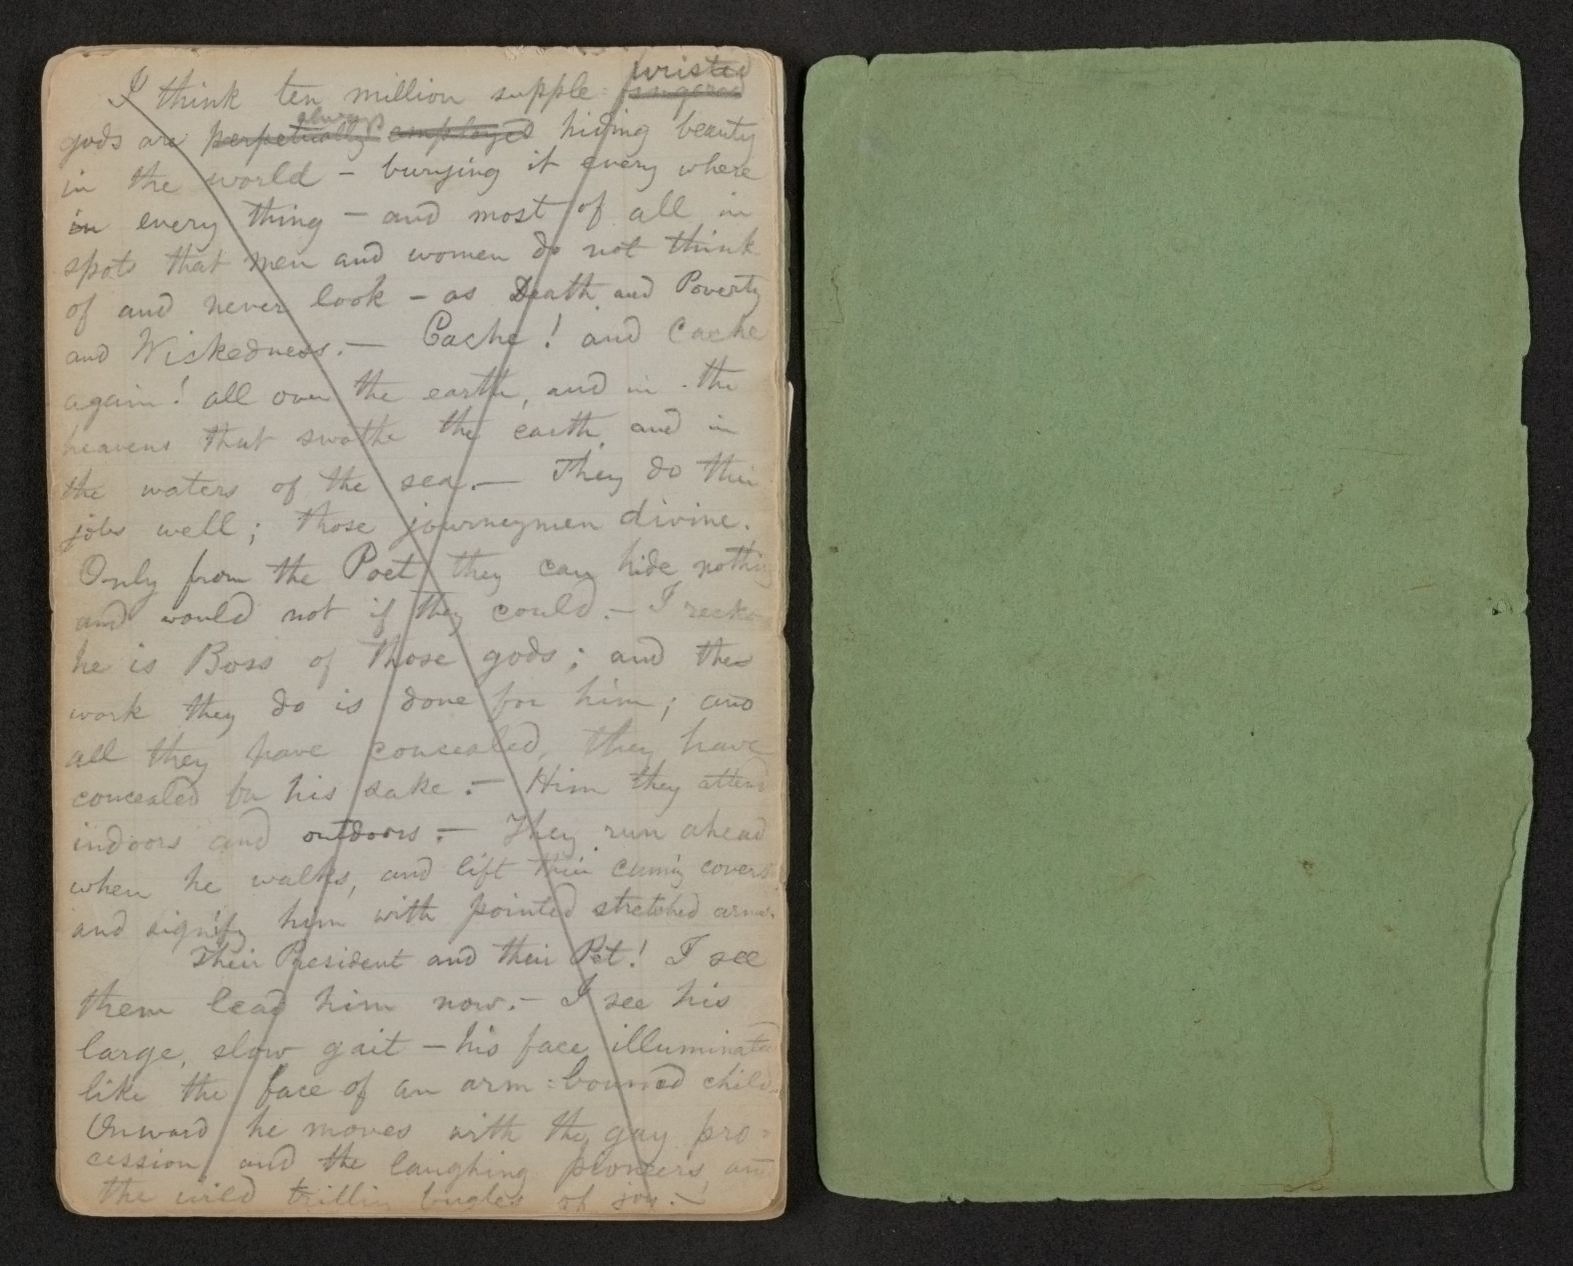 I think ten million supple-wristed fingered
gods are perpetually always employed hiding beauty
in the world — burying it every where
in every thing — and most of all in
spots that men and women do not think
of and never look — as Death and Poverty
and Wickedness. — Cache! and Cache
again! all over the earth, and in the
heavens that swathe the earth, and in
the waters of the sea. — They do their
jobs well; those journeymen divine.
Only from the Poet they can hide nothing
and would not if they could. — I reckon
he is Boss of those gods; and the
work they do is done for him; and
all they have concealed, they have
concealed for his sake. — Him they attend
indoors and outdoors. — They run ahead
when he walks, and lift their cunning covers
and signify him with pointed stretched arms.
Their President and their Pet! I see
them lead him now. — I see his
large, slow gait — his face illuminated
like the face of an arm-bound child.
Onward he moves with the gay pro-
cession, and the laughing pioneers, and
the wild trilling bugles of joy. —